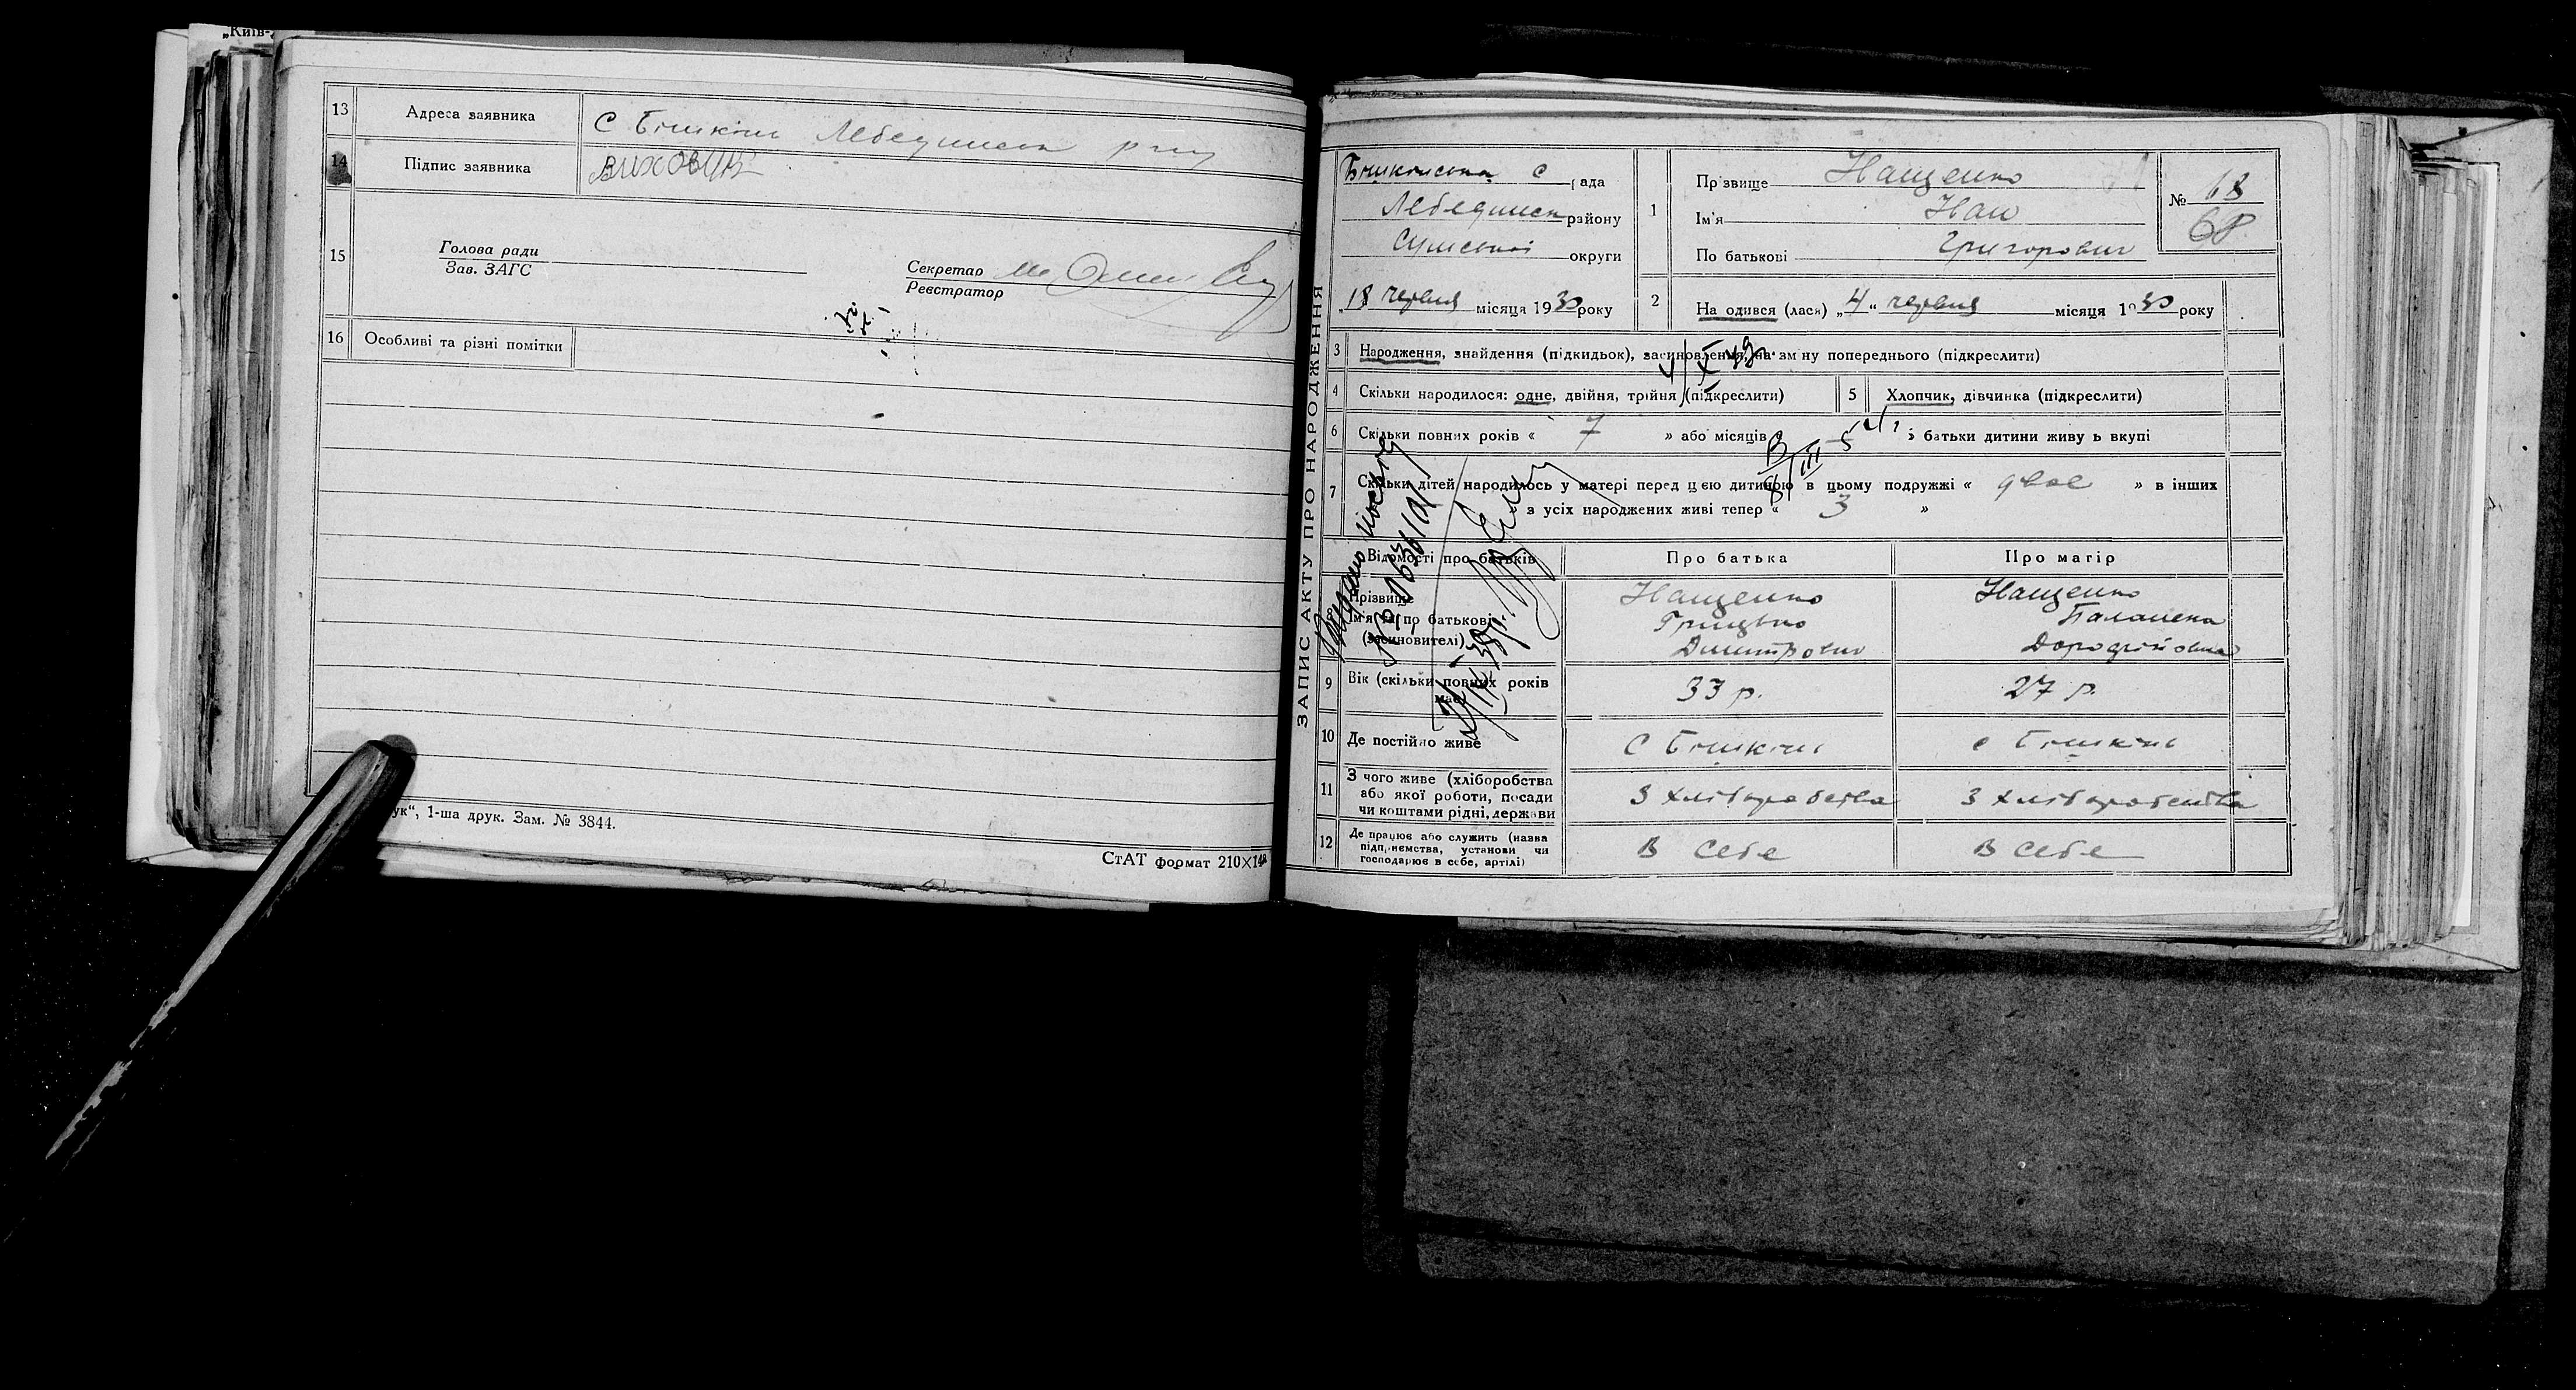 „Київ-
13 Адреса заявника С Бішкінь Лебединськ р-ну
14 Підпис заявника
15 Голова ради
Зав. ЗАГС
Секретар
Реєстратор
16 Особливі та різні помітки
ук“, 1-ша друк. Зам. № 3844.
СтАТ формат 210×148
ЗАПИС АКТУ ПРО НАРОДЖЕННЯ
Бішкінська с рада
Лебединськ району
Сумської округи
„18 червня місяця 1930 року
1 Прізвище Нащенко
Ім'я Іван
По батькові Григорович
№ 68
68
2 На одився (лася) „4“ червня місяця 1930 року
3 Народження, знайдення (підкидьок), засиновлення, на зміну попереднього (підкреслити)
4 Скільки народилося: одне, двійня, трійня (підкреслити)
5 Хлопчик, дівчинка (підкреслити)
6 Скільки повних років « 7 » або місяців батьки дитини живу ь вкупі
7 Скільки дітей народилось у матері перед цією дитиною в цьому подружжі « двоє » в інших
з усіх народжених живі тепер « 3 »
Відомості про батьків Про батька Про матір
Прізвище Нащенко Нащенко
Ім'я та по батькові Грицько Палажка
(засиновителі) Дмитрович Дорофіївна
9 Вік (скільки повних років має) 33 р. 27 р.
10 Де постійно живе С Бішкінь с Бішкінь
11 З чого живе (хліборобства
або якої роботи, посади З хліборобства З хліборобства
чи коштами рідні, держави
12 Де працює або служить (назва
підприємства, установи чи В себе В себе
господарює в себе, артілі)